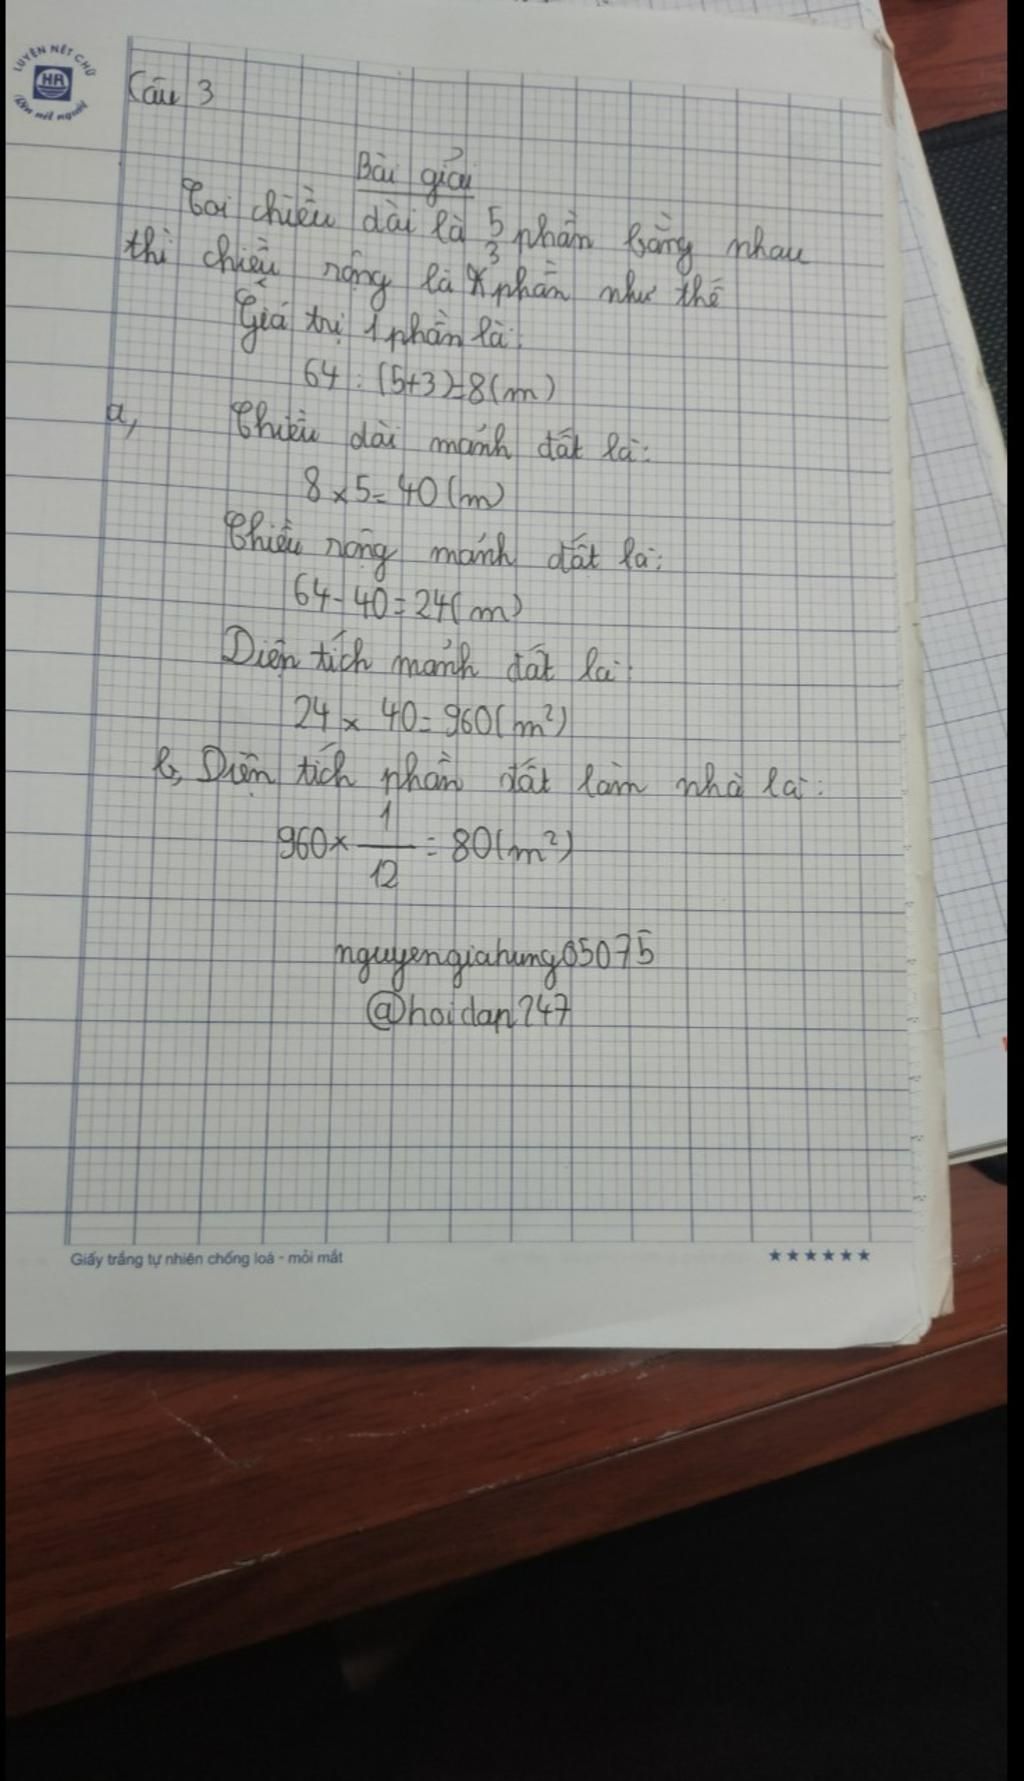 LUYỆN NÉT CHỮ
HR
Rèn nết người
Câu 3
Bài giải
Coi chiều dài là 5 phần bằng nhau
thì chiều rộng là 3 phần như thế
Giá trị 1 phần là:
64 : (5+3)=8(m)
a, Chiều dài mảnh đất là:
8 x 5 = 40 (m)
Chiều rộng mảnh đất là:
64 - 40 = 24(m)
Diện tích mảnh đất là:
24 x 40 = 960(m²)
b, Diện tích phần đất làm nhà là:
960 x 1/12 = 80(m²)
nguyengiahung05075
@hoidap247
Giấy trắng tự nhiên chống loá - mỏi mắt
★★★★★★